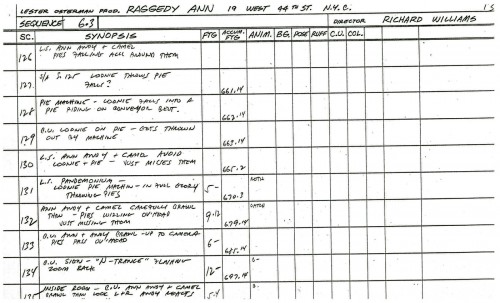 LESTER OSTERMAN PROD. RAGGEDY ANN 19 WEST 44TH ST. N.Y.C. 15
SEQUENCE 6.3 DIRECTOR RICHARD WILLIAMS
SC. SYNOPSIS FTG ACCUM. FTG ANIM. BG. POSE RUFF C.U. COL.
126 L.S. ANN ANDY & CAMEL
PIES FALLING ALL AROUND THEM
127 S/A S.125 LOONIE THROWS PIE
FALLS? 661.14
128 PIE MACHINE - LOONIE FALLS INTO A
PIE RIDING ON CONVEYOR BELT. 662.14
129 C.U. LOONIE ON PIE - GETS THROWN
OUT BY MACHINE 663.14
130 L.S. ANN ANDY & CAMEL AVOID
LOONIE & PIE - JUST MISSES THEM 665.2
131 L.S. PANDEMONIUM -
LOONIE PIE MACHINE - IN FULL GLORY
THROWING PIES 5- 670.3
132 ANN ANDY & CAMEL CAREFULLY CRAWL
THRU - PIES WHIZZING OV'HEAD
JUST MISSING THEM 9.12 679.14
133 C.U. ANN & ANDY CRAWL - UP TO CAMERA
PIES PASS OV'HEAD 6- 685.14
134 C.U. SIGN - "N-TRANCE" FLASHING
ZOOM BACK 12- 697.14
135 INSIDE ROOM - C.U. ANN ANDY & CAMEL
CRAWL THEN LOOK L&R ANDY REACTS 5.4